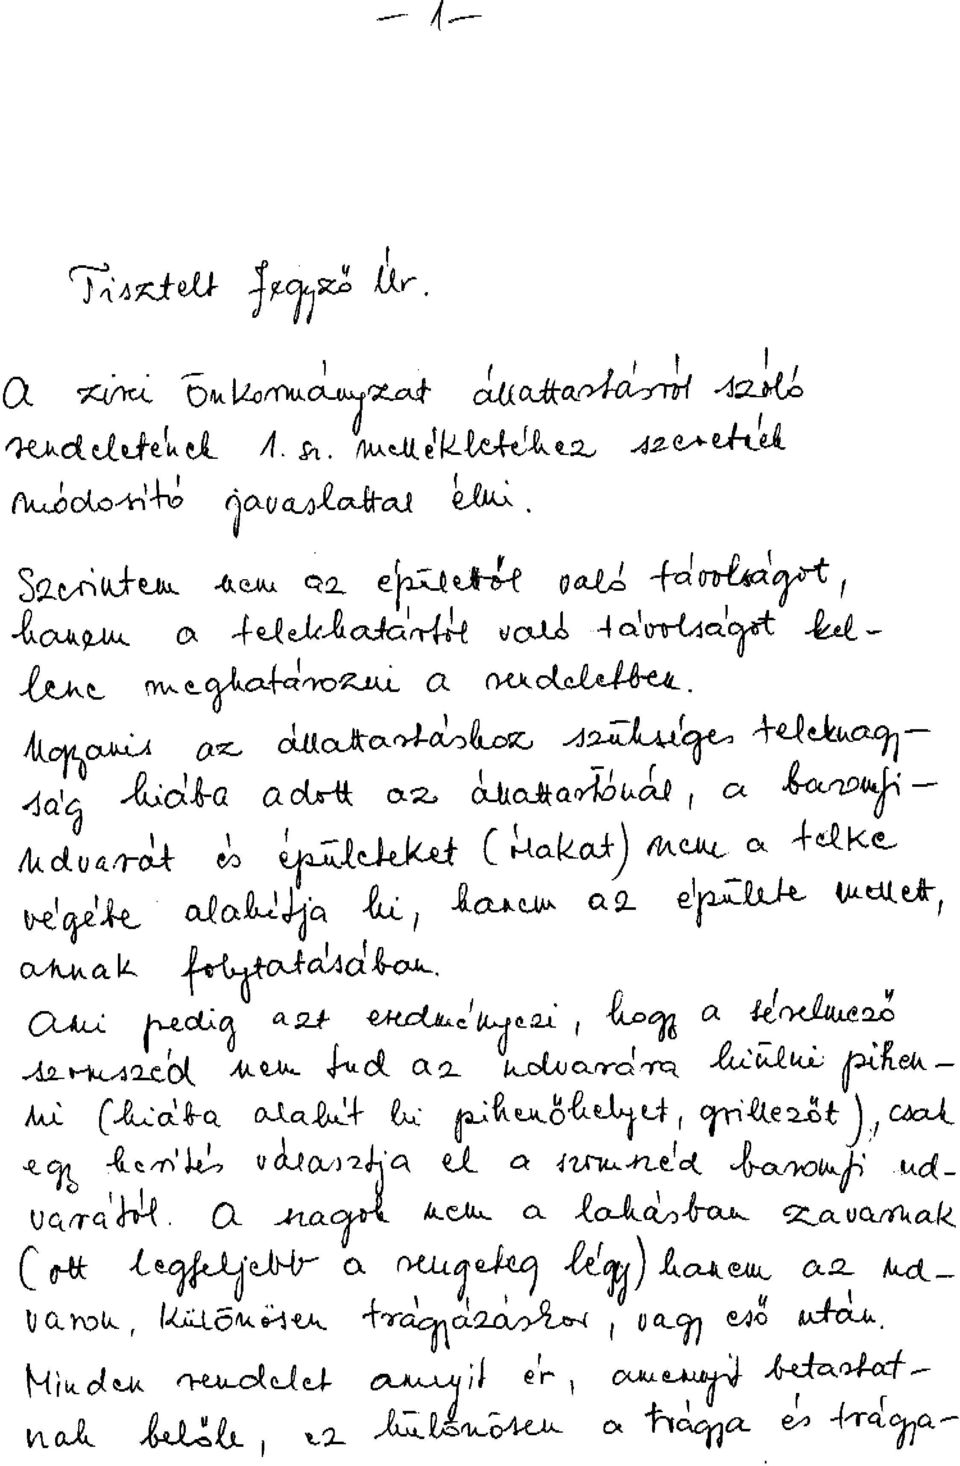 - 1 -
Tisztelt Jegyző Úr.
A zirci Önkormányzat állattartásról szóló
rendeletének 1. sz. mellékletéhez szeretnék
módosító javaslattal élni.
Szerintem nem az épülettől való távolságot,
hanem a telekhatártól való távolságot kel-
lene meghatározni a rendeletben.
Ugyanis az állattartáshoz szükséges teleknagy-
ság hiába adott az állattartónál, a baromfi-
udvarát és épületeket (ólakat) nem a telke
végébe alakítja ki, hanem az épülete mellett,
annak folytatásában.
Ami pedig azt eredményezi, hogy a sérelmező
szomszéd nem tud az udvarára kiülni pihen-
ni (hiába alakít ki pihenőhelyet, grillezőt), csak
egy kerítés választja el a szomszéd baromfi ud-
varától. A szagok nem a lakásban zavarnak
(ott legfeljebb a rengeteg légy) hanem az ud-
varon, különösen trágyázáskor, vagy eső után.
Minden rendelet annyit ér, amennyit betartat-
nak belőle, ez különösen a trágya és trágya-